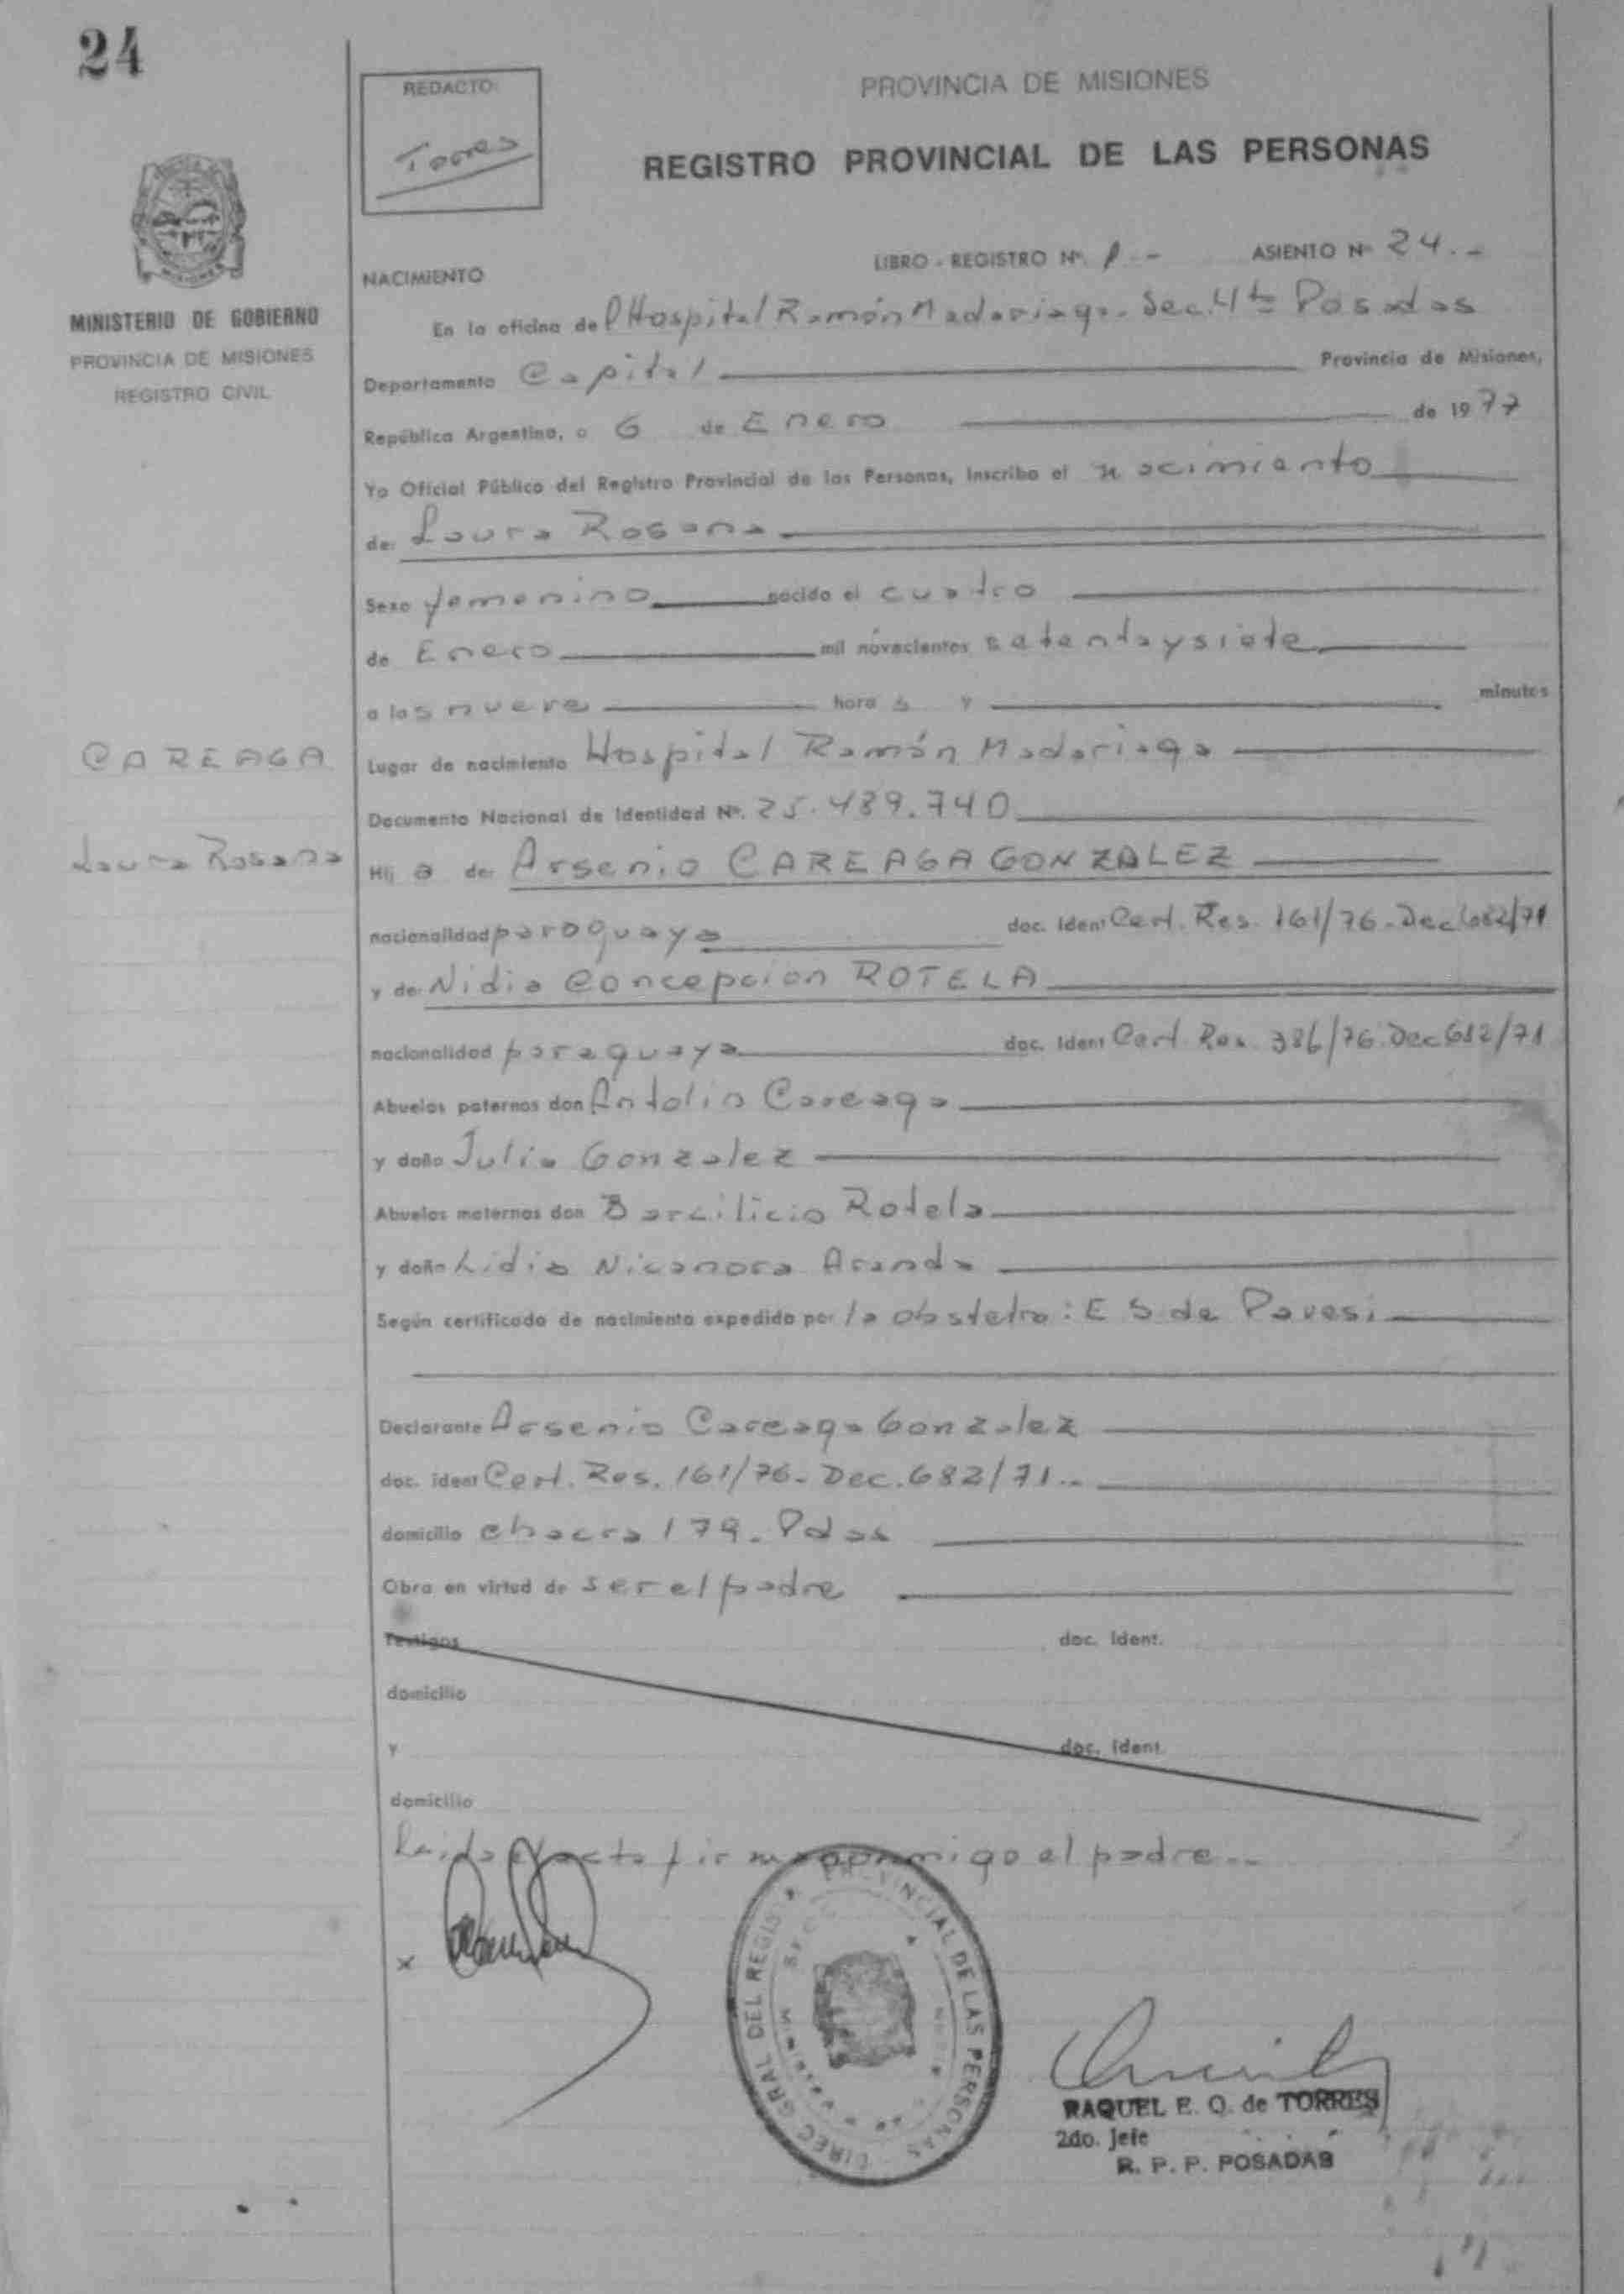 24
REDACTO:
Torres
PROVINCIA DE MISIONES
REGISTRO PROVINCIAL DE LAS PERSONAS
LIBRO - REGISTRO Nº 1 -- ASIENTO Nº 24.-
NACIMIENTO
MINISTERIO DE GOBIERNO
PROVINCIA DE MISIONES
REGISTRO CIVIL
En la oficina del Hospital Ramón Madariaga. Sec. 4ta Posadas
Departamento Capital Provincia de Misiones,
República Argentina, a 6 de Enero de 1977
Yo Oficial Público del Registro Provincial de las Personas, inscribo el nacimiento
de: Laura Rosana
Sexo femenino nacido el cuatro
de Enero mil novecientos setenta y siete
a las nueve hora s y minutos
CAREAGA
Lugar de nacimiento Hospital Ramón Madariaga
Documento Nacional de Identidad Nº. 25.489.740
Laura Rosana
Hij a de: Arsenio CAREAGA GONZALEZ
nacionalidad paraguaya doc. Ident Cert. Res. 161/76-Dec 682/71
y de: Nidia Concepcion ROTELA
nacionalidad paraguaya doc. Ident Cert. Res. 386/76-Dec 682/71
Abuelos paternos don Antolin Careaga
y doña Julia Gonzalez
Abuelos maternos don Barcilicio Rotela
y doña Lidia Nicanora Aranda
Según certificado de nacimiento expedido por la obstetra: E S de Pavesi
Declarante Arsenio Careaga Gonzalez
doc. ident Cert. Res. 161/76- Dec. 682/71.-
domicilio chacra 179- Pdas
Obra en virtud de ser el padre
Testigos doc. Ident.
domicilio
y doc. Ident.
domicilio
Leida el acta firma conmigo el padre --
x
DIREC GRAL DEL REGIS PROVINCIAL DE LAS PERSONAS
RAQUEL E. Q. de TORRES
2do. Jefe
R. P. P. POSADAS